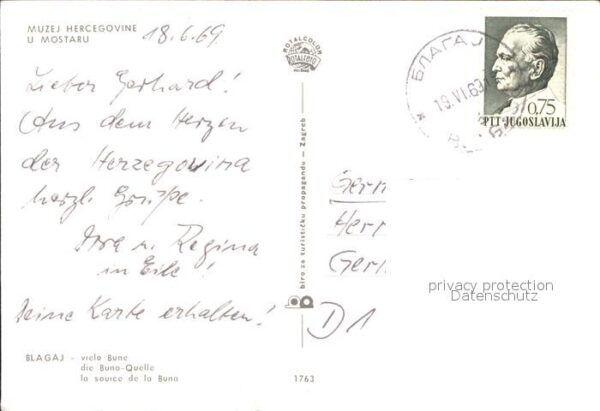 MUZEJ HERCEGOVINE
U MOSTARU
18.6.69
Lieber Gerhard!
Aus dem Herzen
der Herzegovina
herzl. Grüße.
u. Regina
in Eile!
Deine Karte erhalten!
BLAGAJ - vrelo Bune
die Buna-Quelle
la source de la Buna
ROTALCOLOR
ROTALFOTO
biro za turističku propagandu — Zagreb
1763
БЛАГАЈ
19.VI.69
0,75
PTT JUGOSLAVIJA
Germ
Herr
Ger
D1
privacy protection
Datenschutz